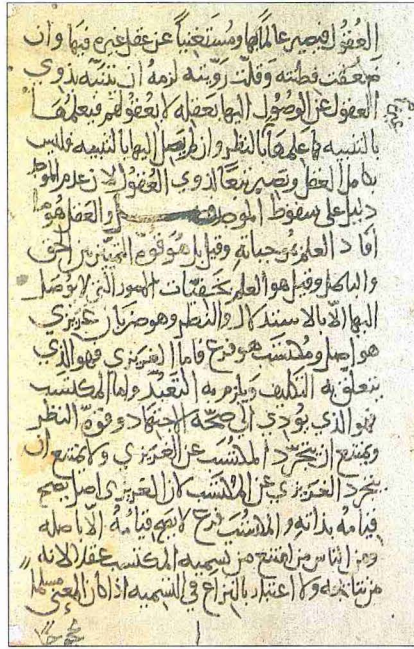 العقول فيصير عالماً بها ومستغنياً عن عقل غيره فيها وان
ضعفت فطنته وقلت رويته لزمه ان يتنبه بذوي
العقول عن الوصول اليها بعقله لا بعقولهم فيعلمها
بالتنبيه كما علمها بالنظر وان لم يصل اليها بالتنبيه فليس
بكامل العقل ويصير تبعاً لذوي العقول لان عدم الموصل
دليل على سقوط الموصل والعقل هو ما
افاد العلم بموجباته وقيل بل هو قوة التمييز بين الحق
والباطل وقيل هو العلم بخفيات الامور التي لا يوصل
اليها الا بالاستدلال والنظر وهو ضربان غريزي
هو اصل ومكتسب هو فرع فاما الغريزي فهو الذي
يتعلق به التكليف ويلزم به التعبد واما المكتسب
فهو الذي يؤدي الى صحة الاجتهاد وقوة النظر
ويمتنع ان يتجرد المكتسب عن الغريزي ولا يمتنع ان
يتجرد الغريزي عن المكتسب لان الغريزي اصل يصح
قيامه بذاته والمكتسب فرع لا يصح قيامه الا باصله
ومن الناس من امتنع من تسمية المكتسب عقلا لانه
من نتائجه ولا اعتبار بالنزاع في التسمية اذا كان المعنى مسلما